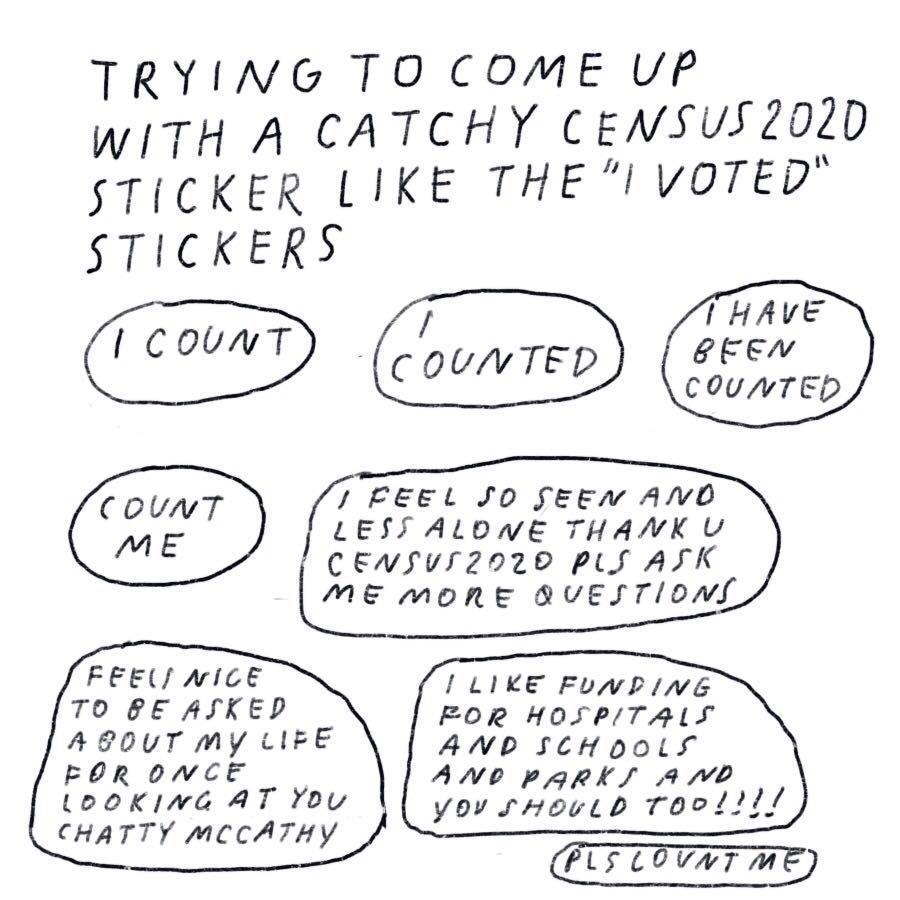 TRYING TO COME UP
WITH A CATCHY CENSUS2020
STICKER LIKE THE "I VOTED"
STICKERS
I COUNT
I
COUNTED
I HAVE
BEEN
COUNTED
COUNT
ME
I FEEL SO SEEN AND
LESS ALONE THANK U
CENSUS2020 PLS ASK
ME MORE QUESTIONS
FEELS NICE
TO BE ASKED
ABOUT MY LIFE
FOR ONCE
LOOKING AT YOU
CHATTY MCCATHY
I LIKE FUNDING
FOR HOSPITALS
AND SCHOOLS
AND PARKS AND
YOU SHOULD TOO!!!!
PLS COUNT ME